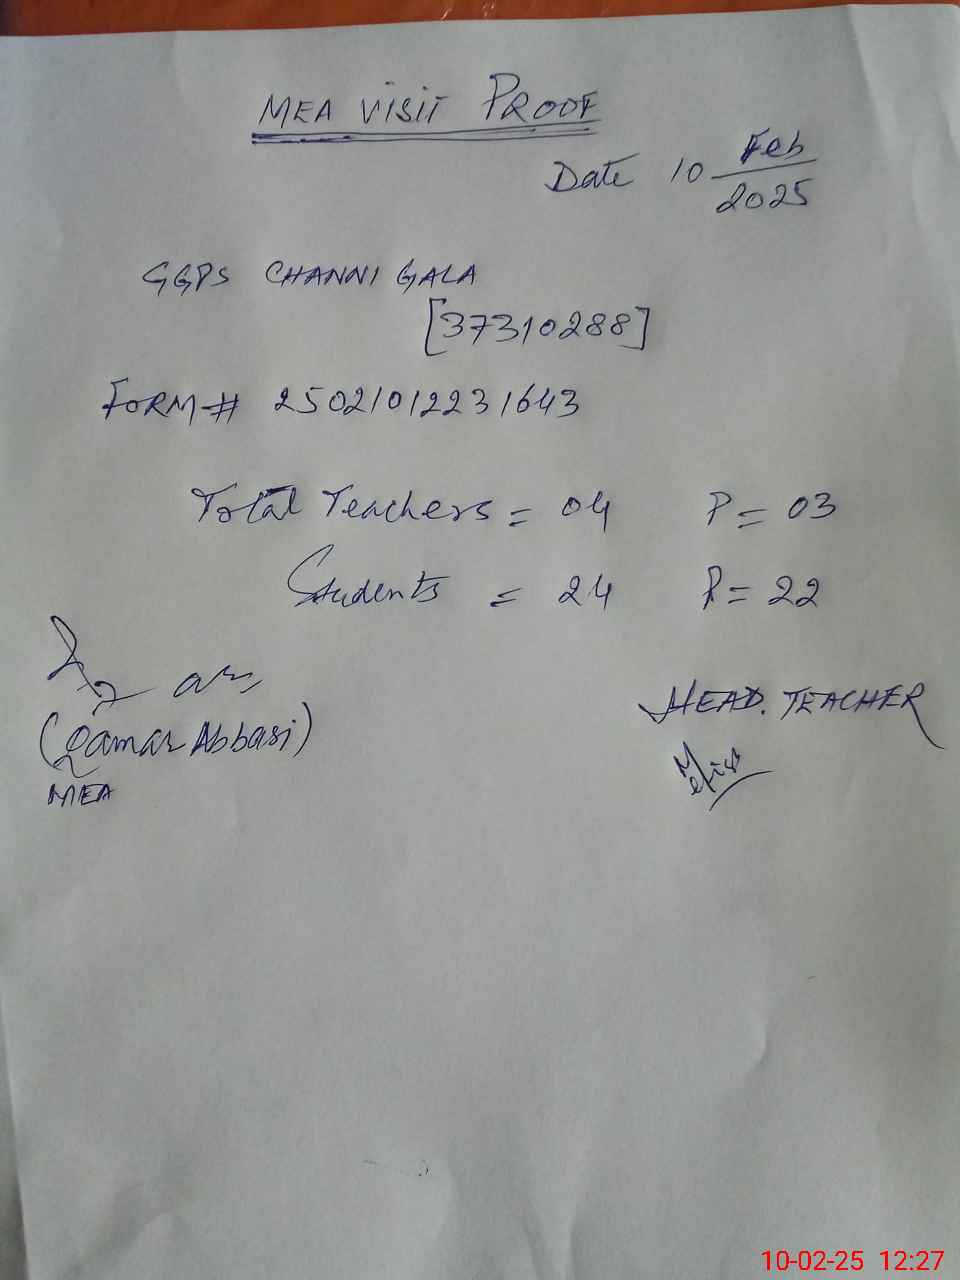 MEA VISIT PROOF
Date 10 Feb
2025
GGPS CHANNI GALA
[37310288]
FORM# 25021012231643
Total Teachers = 04 P = 03
Students = 24 P = 22
(Qamar Abbasi)
MEA
HEAD. TEACHER
10-02-25 12:27